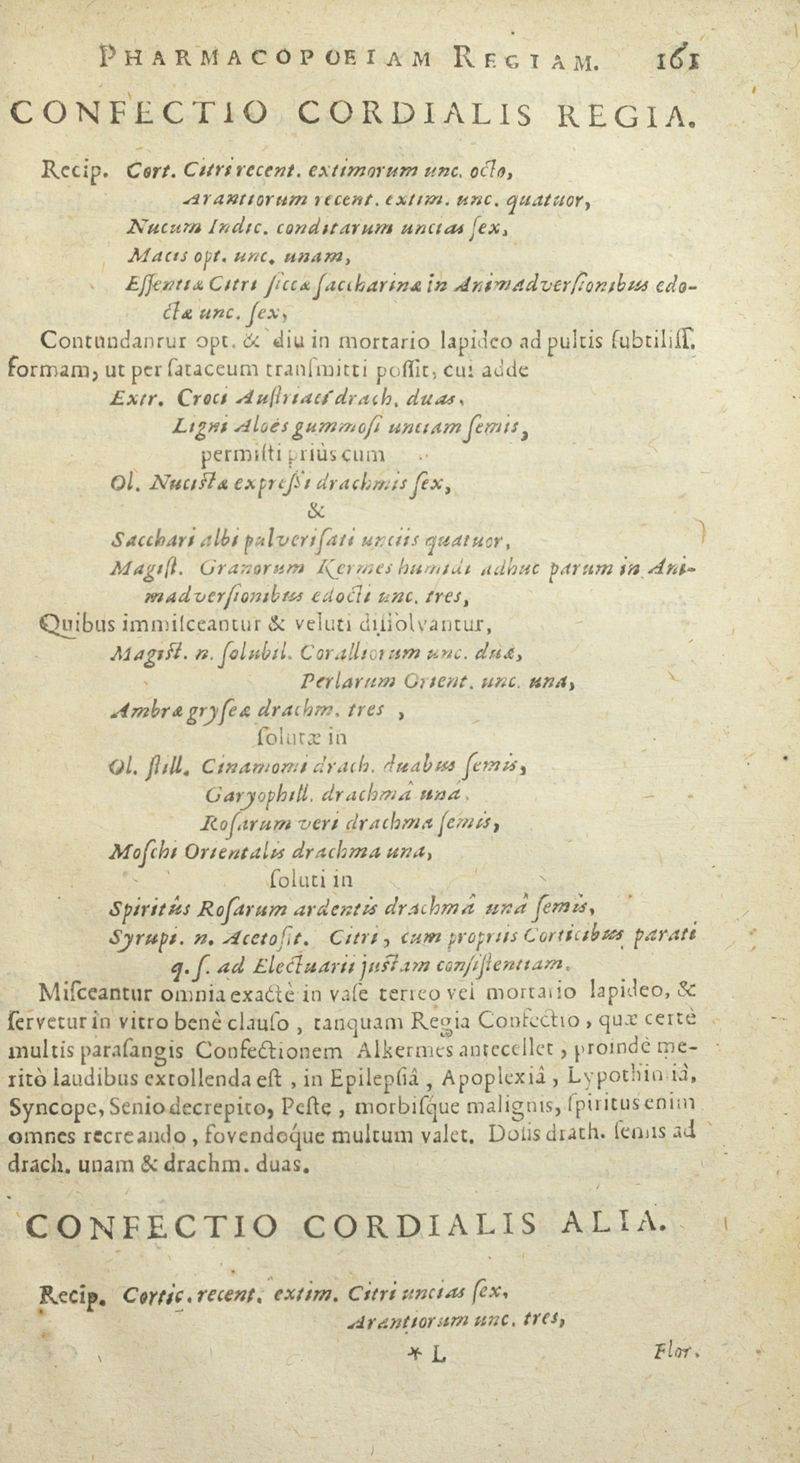 PHARMACOPOEIAM REGIAM. 161
CONFECTIO CORDIALIS REGIA.
Recip. Cort. Citri recent. extimorum unc. octo,
Arantiorum recent. extim. unc. quatuor,
Nucum Indic. conditarum uncias ſex,
Macis opt. unc. unam,
Eſſentiæ Citri ſiccæ ſaccharinæ in Animadverſionibus edo-
ctæ unc. ſex,
Contundanrur opt. & diu in mortario lapideo ad pultis ſubtiliſſ.
formam, ut per ſataceum tranſmitti poſſit, cui adde
Extr. Croci Auſtriaci drach. duas,
Ligni Aloës gummoſi unciam ſemis,
permiſti priùs cum
Ol. Nuciſtæ expreſſi drachmis ſex,
&
Sacchari albi pulveriſati unciis quatuor,
Magiſt. Granorum Kermes humidi adhuc parum in Ani-
madverſionibus edocti unc. tres,
Quibus immiſceantur & veluti diſſolvantur,
Magiſt. n. ſolubil. Coralliorum unc. duæ,
Perlarum Orient. unc. una,
Ambræ gryſeæ drachm. tres ,
ſolutæ in
Ol. ſtill. Cinamomi drach. duabus ſemis,
Garyophill. drachmâ unâ,
Roſarum veri drachma ſemis,
Moſchi Orientalis drachma una,
ſoluti in
Spiritûs Roſarum ardentis drachmâ unâ ſemis,
Syrupi. n. Acetoſit. Citri, cum propriis Corticibus parati
q. ſ. ad Electuarii juſtam conſiſtentiam.
Miſceantur omnia exactè in vaſe terreo vel mortario lapideo, &
ſervetur in vitro benè clauſo , tanquam Regia Confectio , quæ certè
multis paraſangis Confectionem Alkermes antecellet , proindè me-
ritò laudibus extollenda eſt , in Epilepſiâ , Apoplexiâ , Lypothimiâ,
Syncope, Senio decrepito, Peſte , morbiſque malignis, ſpiritus enim
omnes recreando , fovendoque multum valet. Doſis drach. ſemis ad
drach. unam & drachm. duas.
CONFECTIO CORDIALIS ALIA.
Recip. Cortic. recent. extim. Citri uncias ſex,
Arantiorum unc. tres,
* L Flor.